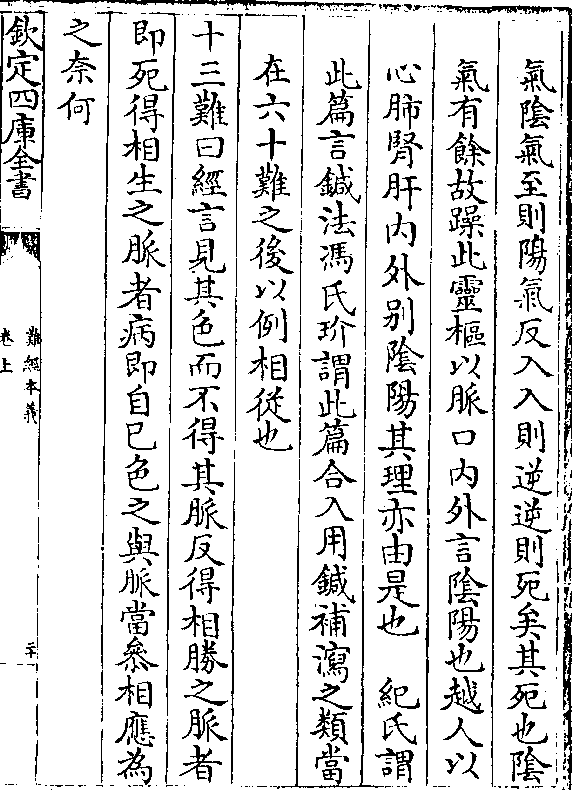 氣陰氣至則陽氣反入入則逆逆則死矣其死也陰
氣有餘故躁此靈樞以脈口內外言陰陽也越人以
心肺腎肝內外别陰陽其理亦由是也　紀氏謂
此篇言鍼法馮氏玠謂此篇合入用鍼補瀉之類當
在六十難之後以例相從也
十三難曰經言見其色而不得其脈反得相勝之脈者
即死得相生之脈者病即自已色之與脈當參相應為
之奈何
欽定四庫全書
難經本義
卷上